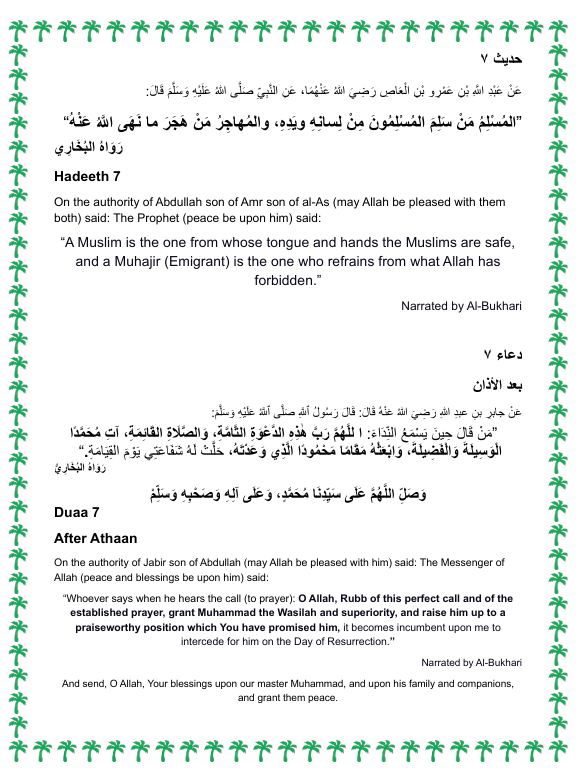 حديث ٧
عَنْ عَبْدِ اللهِ بْنِ عَمْرِو بْنِ الْعَاصِ رَضِيَ اللهُ عَنْهُمَا، عَنِ النَّبِيِّ صَلَّى اللهُ عَلَيْهِ وَسَلَّمَ قَالَ:
”المُسْلِمُ مَنْ سَلِمَ المُسْلِمُونَ مِنْ لِسانِهِ ويَدِهِ، والمُهاجِرُ مَنْ هَجَرَ ما نَهَى اللهُ عَنْهُ“
رَوَاهُ البُخَارِي
Hadeeth 7
On the authority of Abdullah son of Amr son of al-As (may Allah be pleased with them
both) said: The Prophet (peace be upon him) said:
“A Muslim is the one from whose tongue and hands the Muslims are safe,
and a Muhajir (Emigrant) is the one who refrains from what Allah has
forbidden.”
Narrated by Al-Bukhari
دعاء ٧
بعد الأذان
عَنْ جابِرِ بنِ عبدِ اللهِ رَضِيَ اللهُ عَنْهُ قَالَ: قَالَ رَسُولُ ٱللهِ صَلَّى ٱللهُ عَلَيْهِ وَسَلَّمَ:
”مَنْ قَالَ حِينَ يَسْمَعُ النِّدَاءَ: ا للَّهُمَّ رَبَّ هَٰذِهِ الدَّعْوَةِ التَّامَّةِ، وَالصَّلَاةِ القَائِمَةِ، آتِ مُحَمَّدًا
الْوَسِيلَةَ وَالْفَضِيلَةَ، وَابْعَثْهُ مَقَامًا مَحْمُودًا الَّذِي وَعَدْتَهُ، حَلَّتْ لَهُ شَفَاعَتِي يَوْمَ القِيَامَةِ.“
رَوَاهُ البُخَارِيُّ
وَصَلِّ اللَّهُمَّ عَلَى سَيِّدِنَا مُحَمَّدٍ، وَعَلَى آلِهِ وَصَحْبِهِ وَسَلِّمْ
Duaa 7
After Athaan
On the authority of Jabir son of Abdullah (may Allah be pleased with him) said: The Messenger of
Allah (peace and blessings be upon him) said:
“Whoever says when he hears the call (to prayer): O Allah, Rubb of this perfect call and of the
established prayer, grant Muhammad the Wasilah and superiority, and raise him up to a
praiseworthy position which You have promised him, it becomes incumbent upon me to
intercede for him on the Day of Resurrection.”
Narrated by Al-Bukhari
And send, O Allah, Your blessings upon our master Muhammad, and upon his family and companions,
and grant them peace.